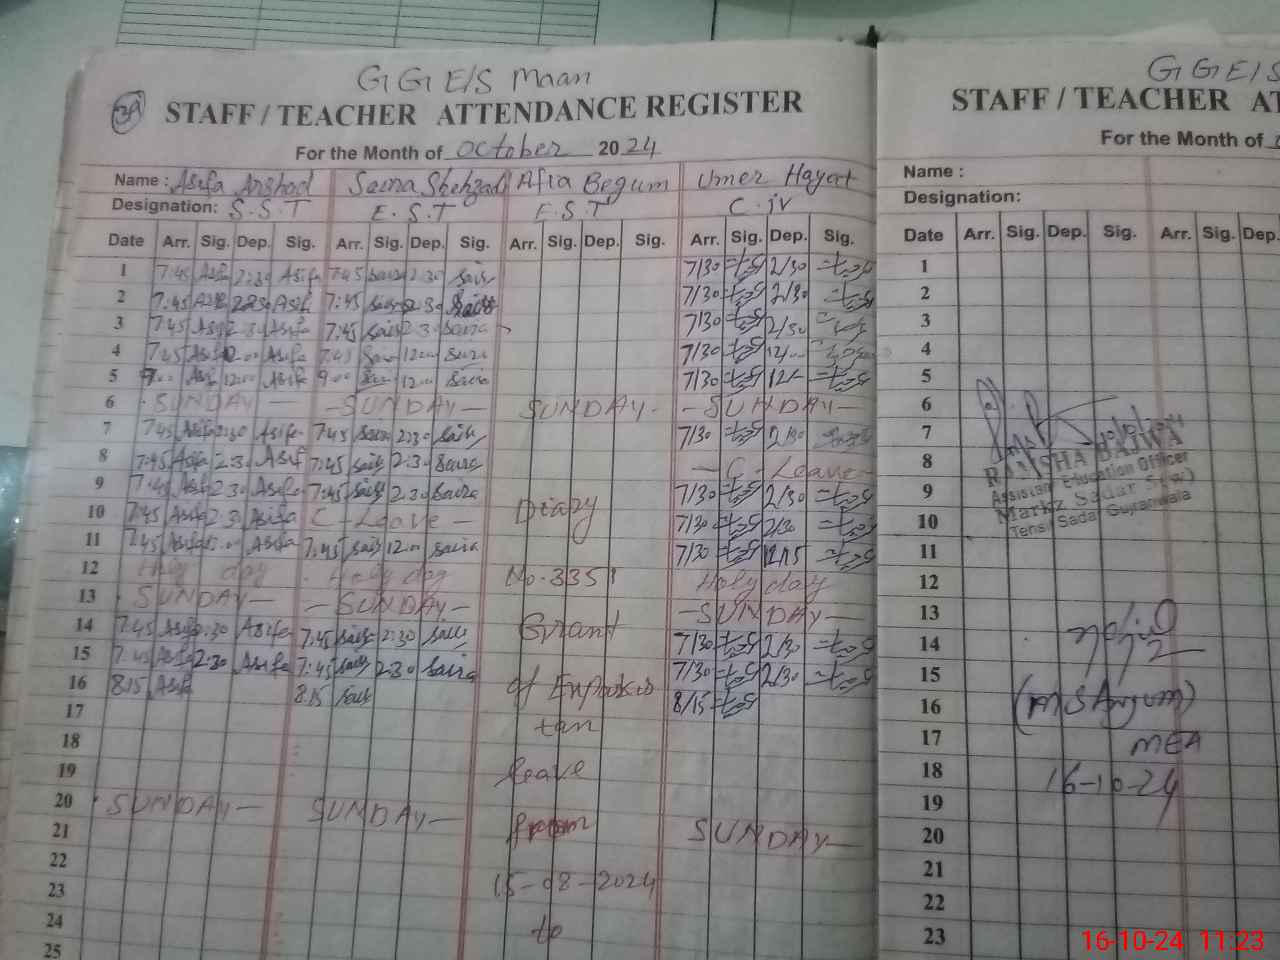 GGE/S Maan
STAFF / TEACHER ATTENDANCE REGISTER
For the Month of October 2024
Name : Asifa Arshad Saira Shehzad Afia Begum Umer Hayat
Designation: S.S.T E.S.T E.S.T C.iv
Date Arr. Sig. Dep. Sig. Arr. Sig. Dep. Sig. Arr. Sig. Dep. Sig. Arr. Sig. Dep. Sig.
1 7:45 Asifa 2:30 Asifa 7:45 Saira 2:30 Saira 7/30 2/30
2 7:45 2:30 Asif 7:45 2:30 7/30 2/30
3 7:45 2:30 Asifa 7:45 2:30 Saira 7/30 2/30
4 7:45 12:00 Asifa 7:45 12:00 Saira 7/30 12/-
5 9:00 Asif 12:00 Asifa 9:00 12:00 Saira 7/30 12/-
6 SUNDAY - - SUNDAY - SUNDAY - - SUNDAY -
7 7:45 Asifa 2:30 Asifa 7:45 Saira 2:30 7/30 2/30
8 7:45 Asifa 2:30 Asif 7:45 2:30 Saira - C - Leave -
9 7:45 Asif 2:30 Asifa 7:45 2:30 Saira 7/30 2/30
10 7:45 Asifa 2:30 Asifa C - Leave - Diary 7/30 2/30
11 7:45 Asifa 12:00 Asifa 7:45 12:00 Saira 7/30 12/15
12 Holy day Holy day No. 3351 Holy day
13 SUNDAY - - SUNDAY - - SUNDAY -
14 7:45 Asifa 2:30 Asifa 7:45 2:30 Grant 7/30 2/30
15 7:45 Asifa 2:30 Asifa 7:45 2:30 Saira 7/30 2/30
16 8:15 Asif 8:15 of Expakis 8/15
17 tan
18
19 leave
20 SUNDAY - SUNDAY -
21 from SUNDAY -
22
23 15-08-2024
24 to
25
GGE/S
STAFF / TEACHER AT
For the Month of
Name :
Designation:
Date Arr. Sig. Dep. Sig. Arr. Sig. Dep.
1
2
3
4
5
6
7
RAMSHA BAJWA
8
Assistant Education Officer
9
Markz Sadar S (w)
10
Tehsil Sadar Gujranwala
11
12
13
14
15
16 (M S Anjum)
17 MEA
18 16-10-24
19
20
21
22
23
16-10-24 11:23